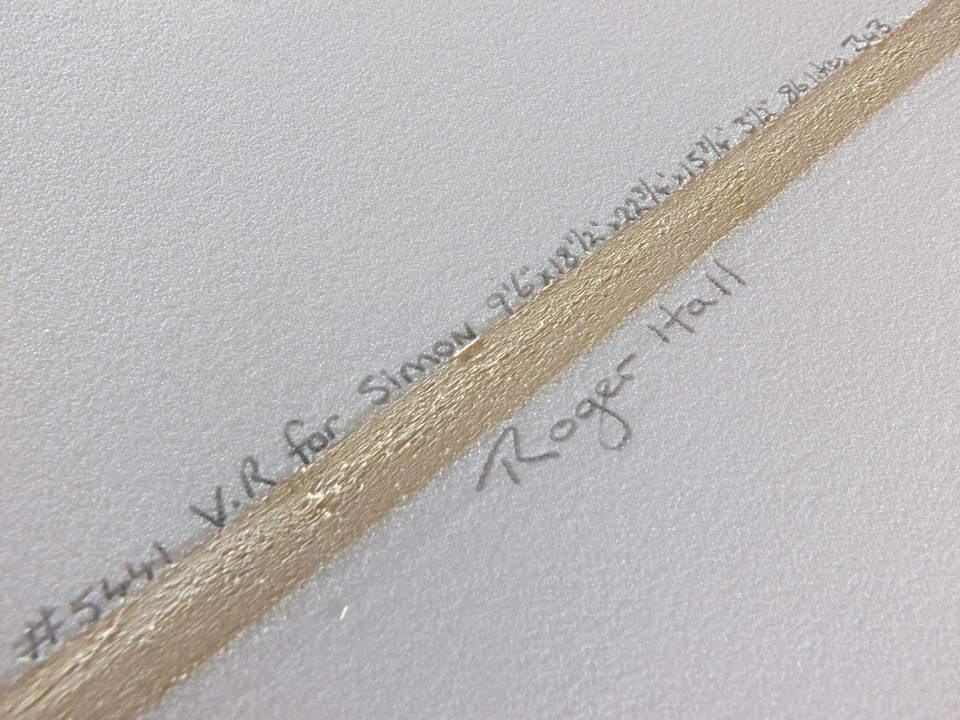 #5441 V.R for Simon 9'6" x 18 1/2" x 22 3/4" x 15 3/4" 3 1/2"
Roger Hall